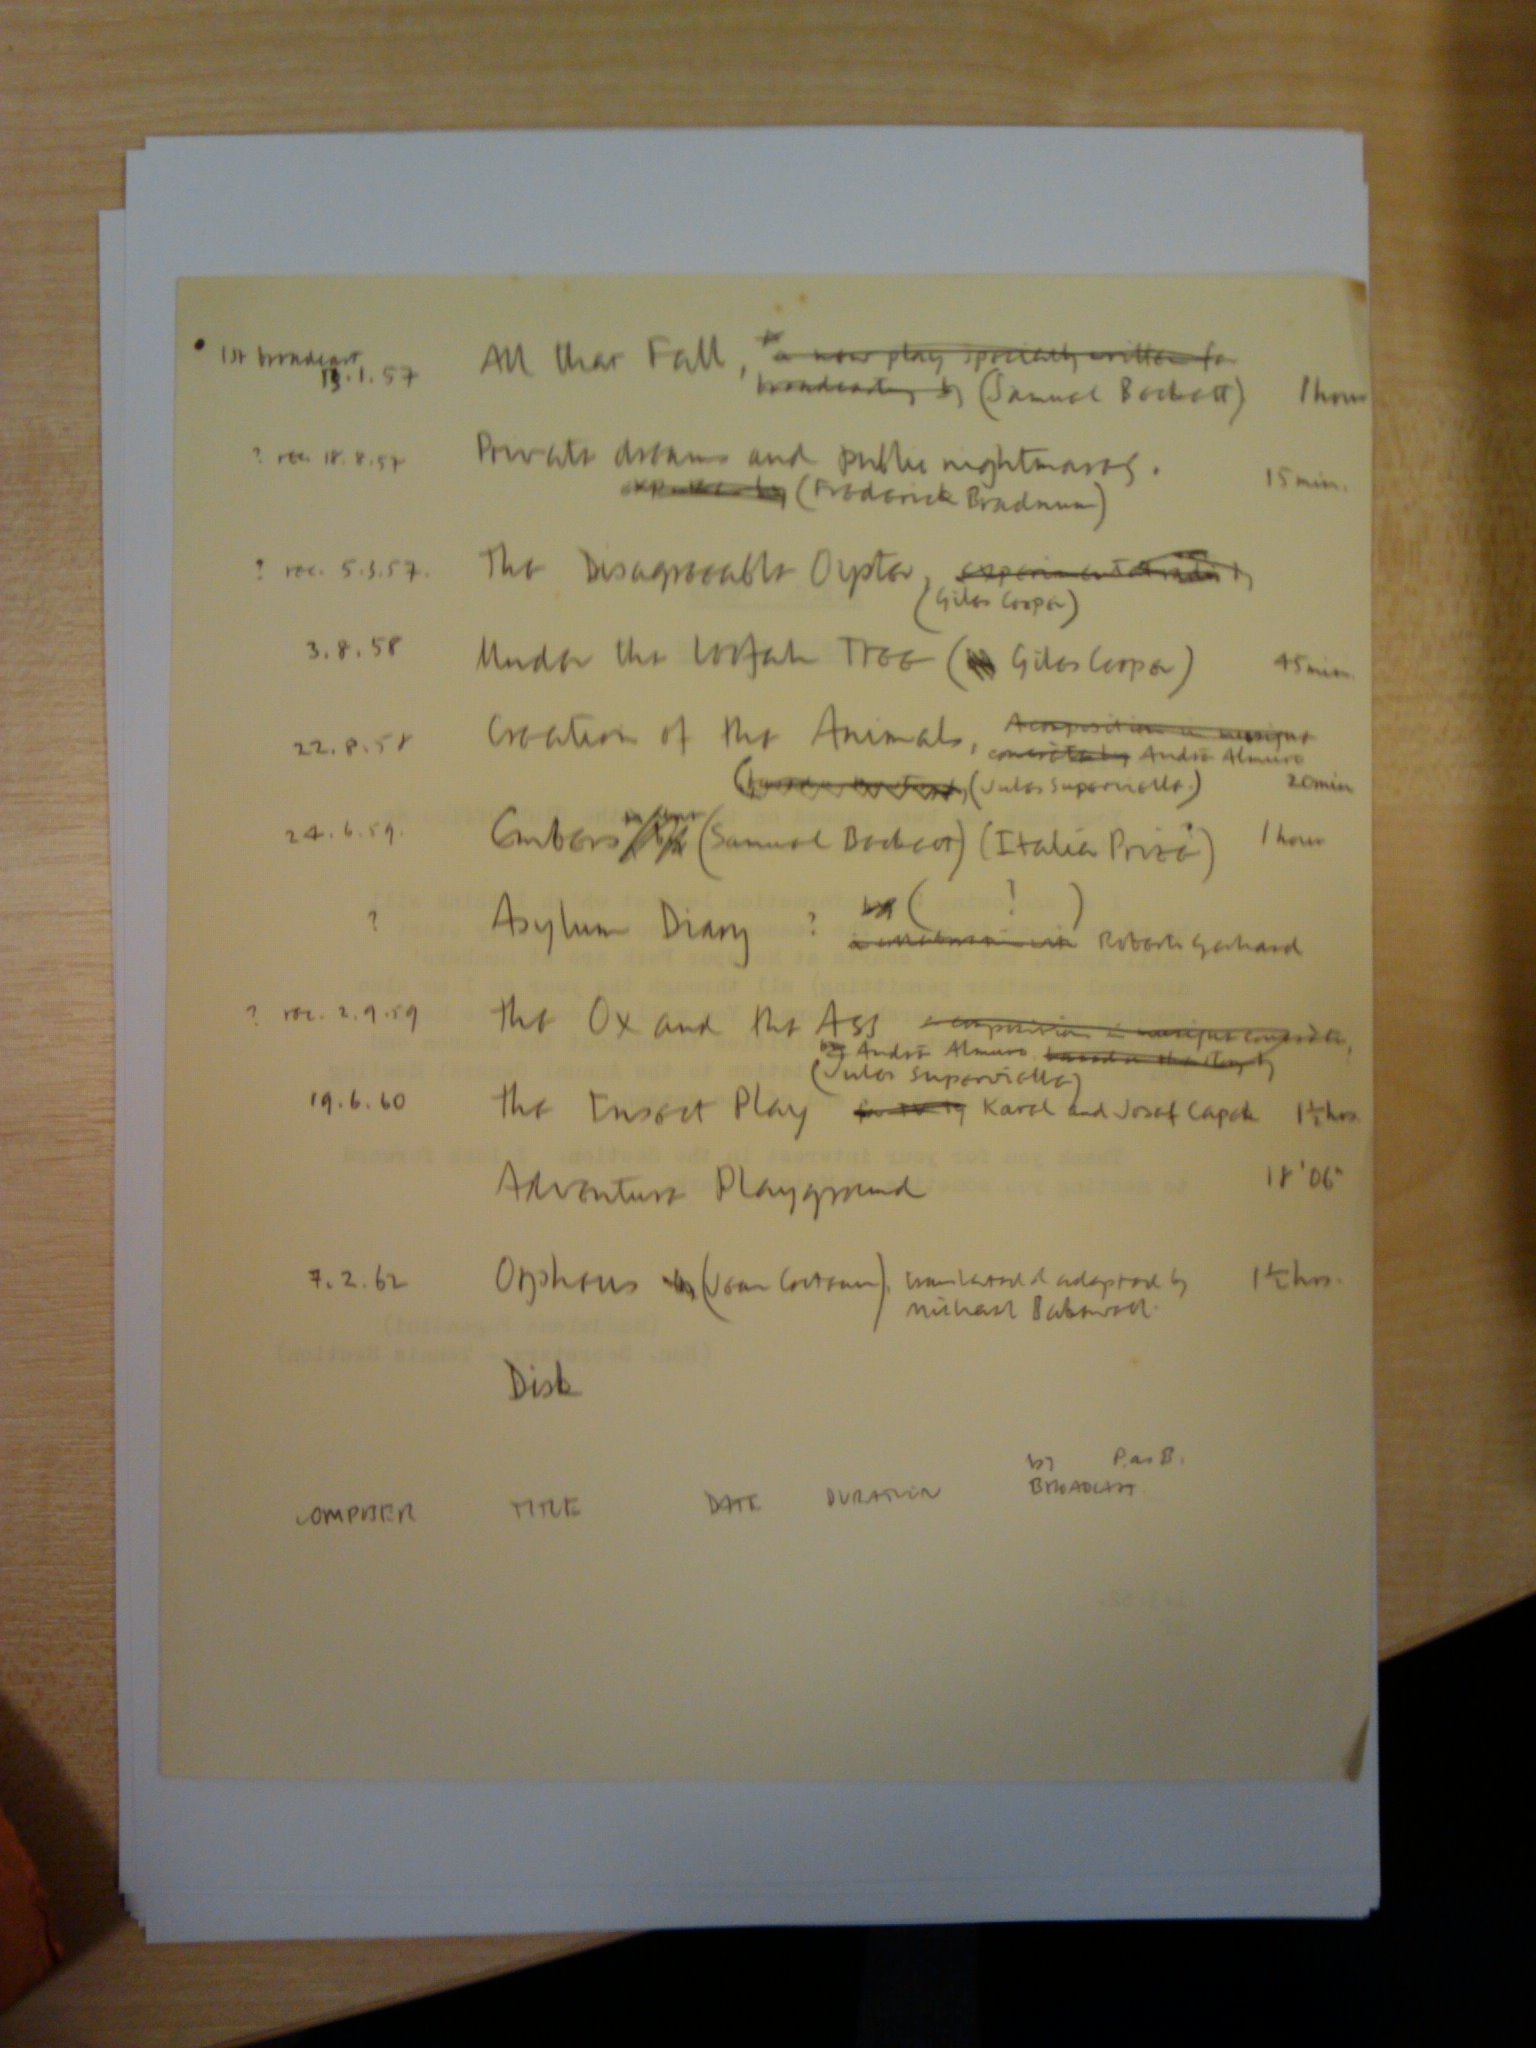 1st broadcast
13.1.57 All that Fall, a new play specially written for
broadcasting by (Samuel Beckett) 1 hour
? rec. 18.8.57 Private dreams and public nightmares.
(Frederick Bradnum) 15 min.
? rec. 5.3.57. The Disagreeable Oyster,
(Giles Cooper)
3.8.58 Under the Loofah Tree (Giles Cooper) 45 min.
22.8.58 Creation of the Animals, A composition in musique
concrète by André Almuro
(Jules Supervielle) 20 min
24.6.59. Embers (Samuel Beckett) (Italia Prize) 1 hour
? Asylum Diary ? by ( ? )
Roberto Gerhard
? rec. 2.9.59 The Ox and the Ass a composition in musique concrète,
by André Almuro based on the story by
(Jules Supervielle)
19.6.60 The Insect Play for TV by Karel and Josef Capek 1½ hrs
Adventure Playground 18'06"
7.2.62 Orpheus by (Jean Cocteau), translated & adapted by 1½ hrs.
Michael Bakewell.
Disk
by P. as B.
COMPOSER TITLE DATE DURATION BROADCAST